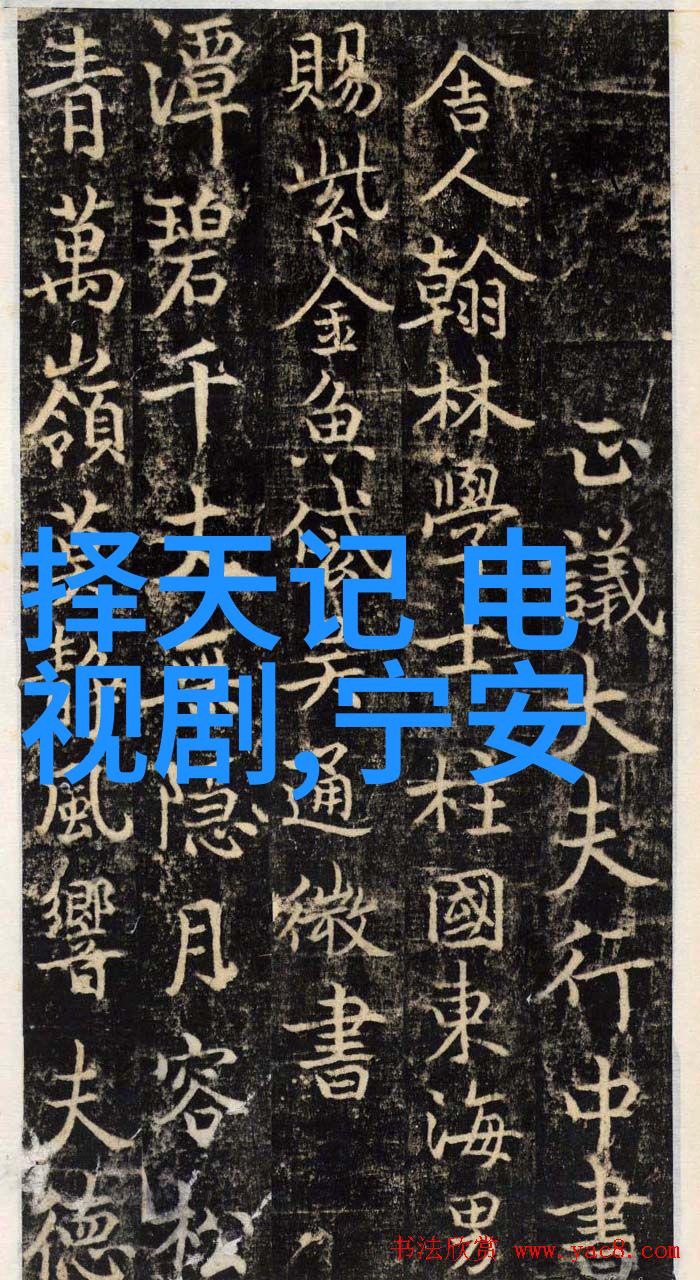 正議大夫行中書
舍人翰林學士柱國東海男
賜紫金魚袋吴通微書
潭碧千丈隐月容松
青萬嶺萬風響夫德
择天记 电
视剧,宁安
书法欣赏 www.yac8.com